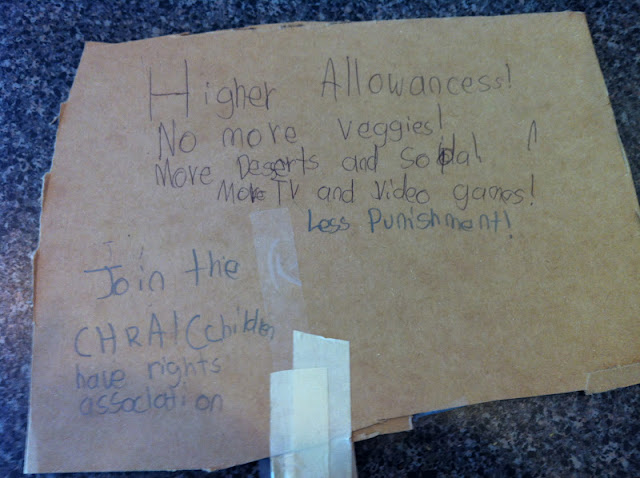 Higher Allowancess!
No more veggies!
More Deserts and Soda!
More TV and video games!
Less Punishment!
Join the
CHRA! (children
have rights
association